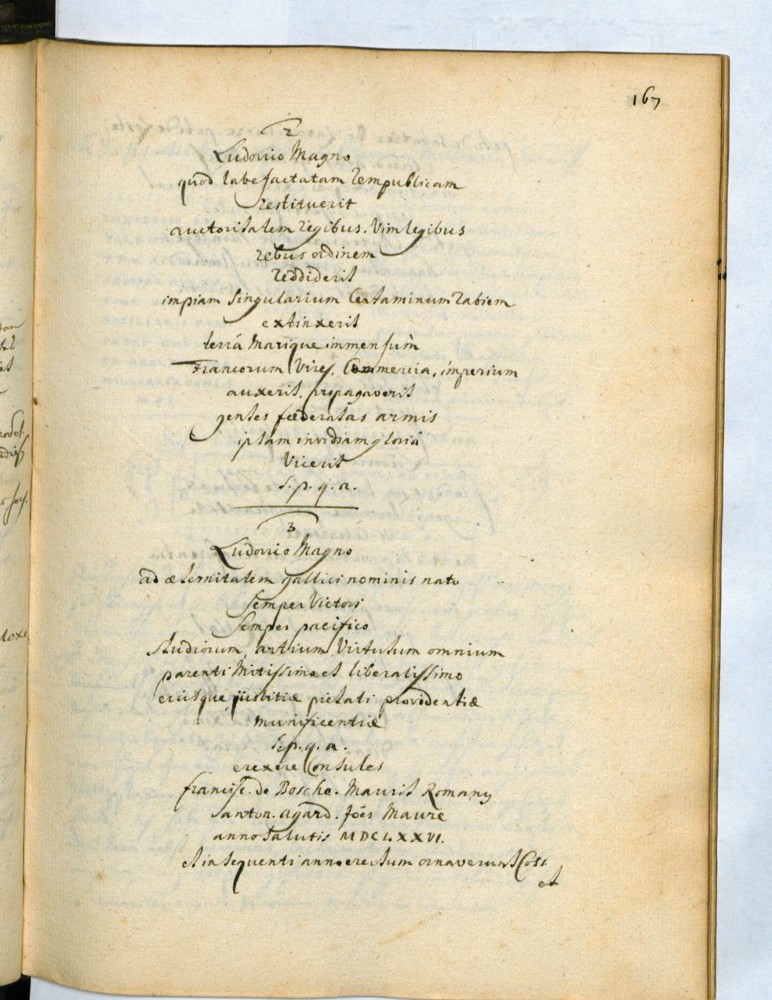 167
2
Ludovico Magno
quod labefactatam rempublicam
restituerit
auctoritatem regibus. Vim legibus
rebus ordinem
reddiderit
impiam singularium Certaminum rabiem
extinxerit
terrâ Marique immensum
Francorum Vires, Commercia, imperium
auxerit. propagaverit
gentes fœderatas armis
ipsam invidiam gloriâ
Vicerit
S.p.q.a.
3
Ludovico Magno
ad æternitatem gallici nominis nato
semper Victori
semper pacifico
studiorum, artium, Virtutum omnium
parenti Mitissimo et liberalissimo
eiusque justitiæ pietati providentiæ
munificentiæ
S.p.q.a.
erexere Consules
francisc. de Bosche. Maurit Romany
anton. agard. Joēs Maure
anno salutis MDCLXXVI.
et in sequenti anno erectum ornaverunt Coss
et